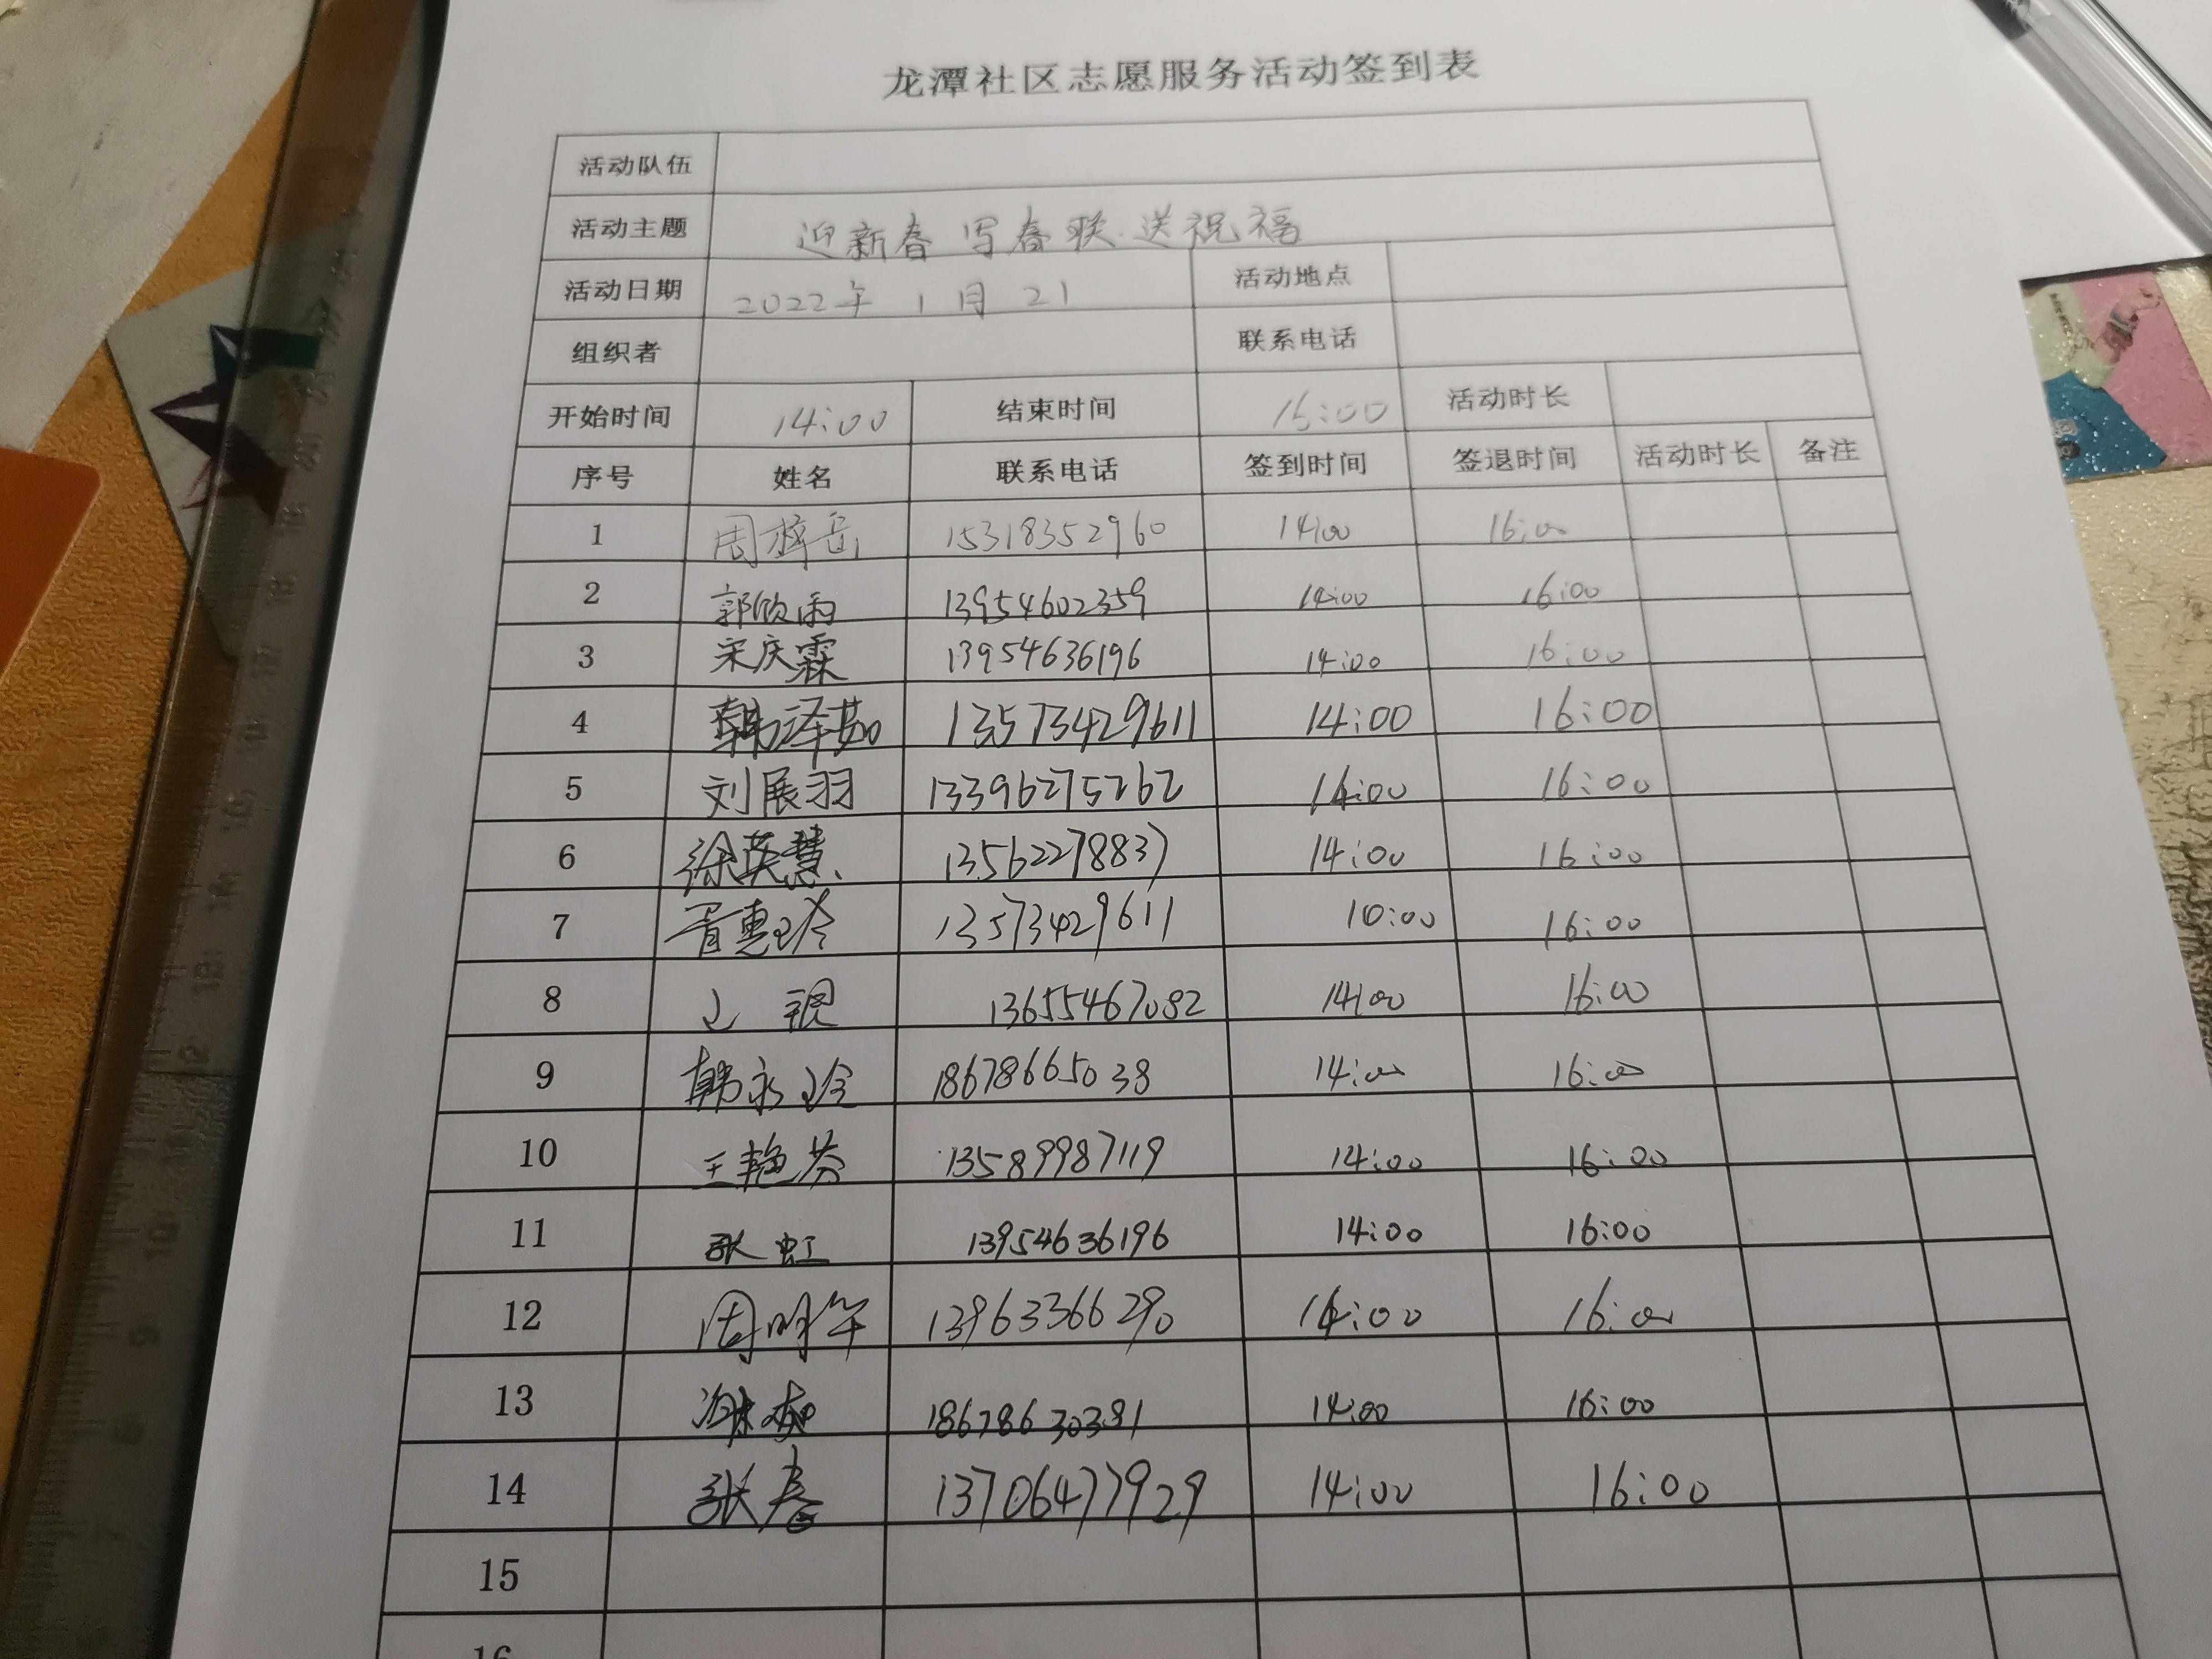 龙潭社区志愿服务活动签到表
活动队伍
活动主题 迎新春 写春联.送祝福
活动日期 2022年 1月 21 活动地点
组织者 联系电话
开始时间 14:00 结束时间 16:00 活动时长
序号 姓名 联系电话 签到时间 签退时间 活动时长 备注
1 周梓岳 15318352960 14:00 16:00
2 郭欣雨 13954602359 14:00 16:00
3 宋庆霖 13954636196 14:00 16:00
4 韩泽茹 13573429611 14:00 16:00
5 刘展羽 13396275262 14:00 16:00
6 徐英慧 13562278837 14:00 16:00
7 胥惠玲 13573429611 10:00 16:00
8 13655467082 14:00 16:00
9 韩永玲 18678665038 14:00 16:00
10 王艳芬 13589987119 14:00 16:00
11 张虹 13954636196 14:00 16:00
12 周明年 13963366290 14:00 16:00
13 18678630381 14:00 16:00
14 张春 13706477929 14:00 16:00
15
16